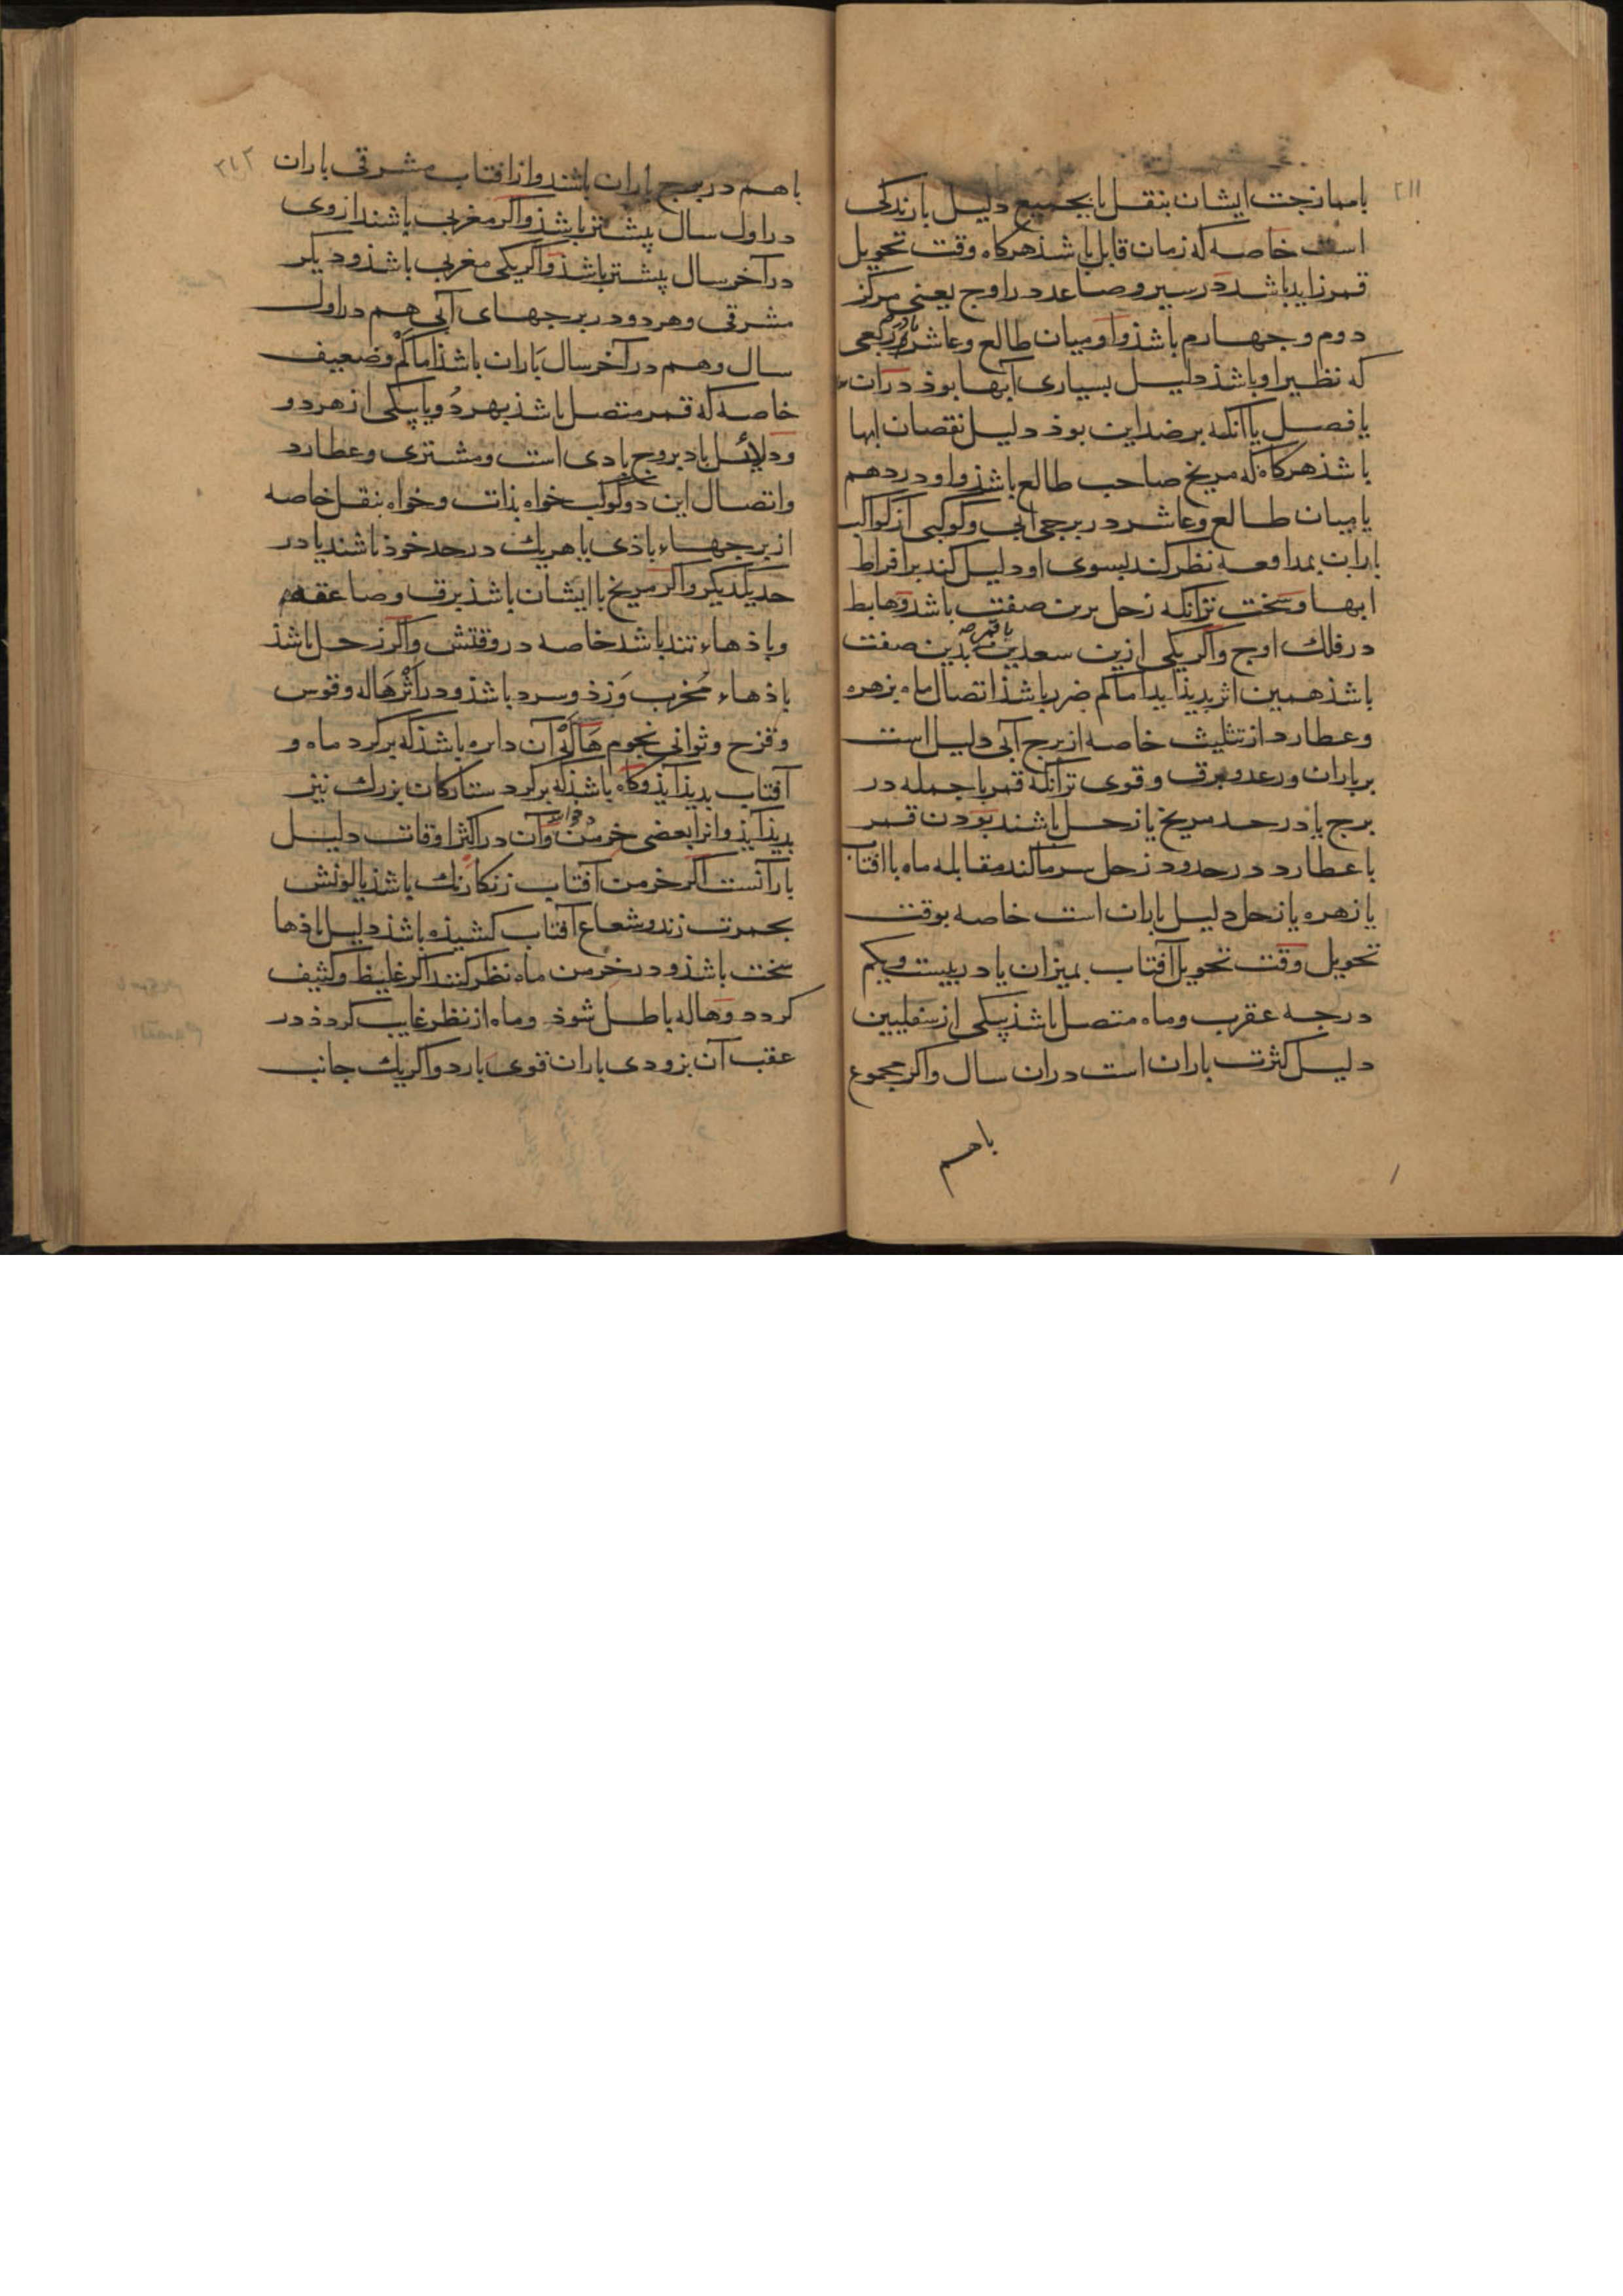 ٢١١
با ممازجت ایشان بنقل یا بجمیع دلیل بارندکی
است خاصه که زمان قابل باشذ هرکاه وقت تحویل
قمر زاید باشد در سیر و صاعد در اوج یعنی مرکز
دوم و جهارم باشذ و او میان طالع و عاشر
که نظیر او باشذ دلیل بسیاری آبها بوذ در آن
یا فصل یا آنکه بر ضد این بوذ دلیل نقصان ابها
باشذ هرکاه که مریخ صاحب طالع باشذ و او در دهم
یا میان طالع و عاشر در برجی ابی و کوکبی از کواکب
باران بمدافعه نظر کند بسوی او دلیل کند بر افراط
ابها و سخت تر آنکه زحل برین صفت باشد و هابط
در فلك اوج و اکر یکی ازین سعدین با قمر بدین صفت
باشذ همین اثر بدیذ اید اما کم ضرر باشذ اتصال ماه بزهره
و عطارد از تثلیث خاصه از برج آبی دلیل است
بر باران و رعد و برق و قوی تر آنکه قمر با جمله در
برج یا در حد مریخ یا زحل باشند بودن قمر
با عطارد در حدود زحل سرما کند مقابله ماه با افتاب
یا زهره یا زحل دلیل باران است خاصه بوقت
تحویل وقت تحویل آفتاب بمیزان یا در بیست و یکم
درجه عقرب و ماه متصل باشذ بیکی از سفلیین
دلیل کثرت باران است در ان سال و اکر مجموع
با هم
٢١٢
با هم در برج باران باشند و از افتاب مشرقی باران
در اول سال پیشتر باشذ و اکر مغربی باشند از وی
در آخر سال پیشتر باشذ و اکر یکی مغربی باشذ و دیکر
مشرقی و هر دو در برجهای آبی هم در اول
سال و هم در آخر سال باران باشذ اما کم و ضعیف
خاصه که قمر متصل باشذ بهر دو یا بیکی از هر دو
و دلائل باد بروج بادی است و مشتری و عطارد
و اتصال این دو کوکب خواه بذات و خواه بنقل خاصه
از برجهاء باذی یا هر یك در حد خوذ باشند یا در
حد یکدیکر و اکر مریخ با ایشان باشذ برق و صاعقه
و باذهاء تند باشد خاصه در وقتش و اکر زحل باشذ
باذهاء مخرب وزذ و سرد باشذ و در اثر هاله و قوس
و قزح و ثوانی نجوم هاله آن دایره باشذ که بر کرد ماه و
آفتاب بدیذ آیذ و کاه باشذ که بر کرد ستارکان بزرك نیز
بدیذ آیذ و انرا بعضی خرمن خوانند و آن در اکثر اوقات دلیل
بارانست اکر خرمن آفتاب زنکار رنك باشذ یا لونش
بحمرت زند و شعاع آفتاب کشیذه باشذ دلیل باذها
سخت باشذ و در خرمن ماه نظر کنند اکر غلیظ و کثیف
کردد و هاله باطل شوذ و ماه از نظر غایب کردذ در
عقب آن بزودی باران قوی بارد و اکر یك جانب